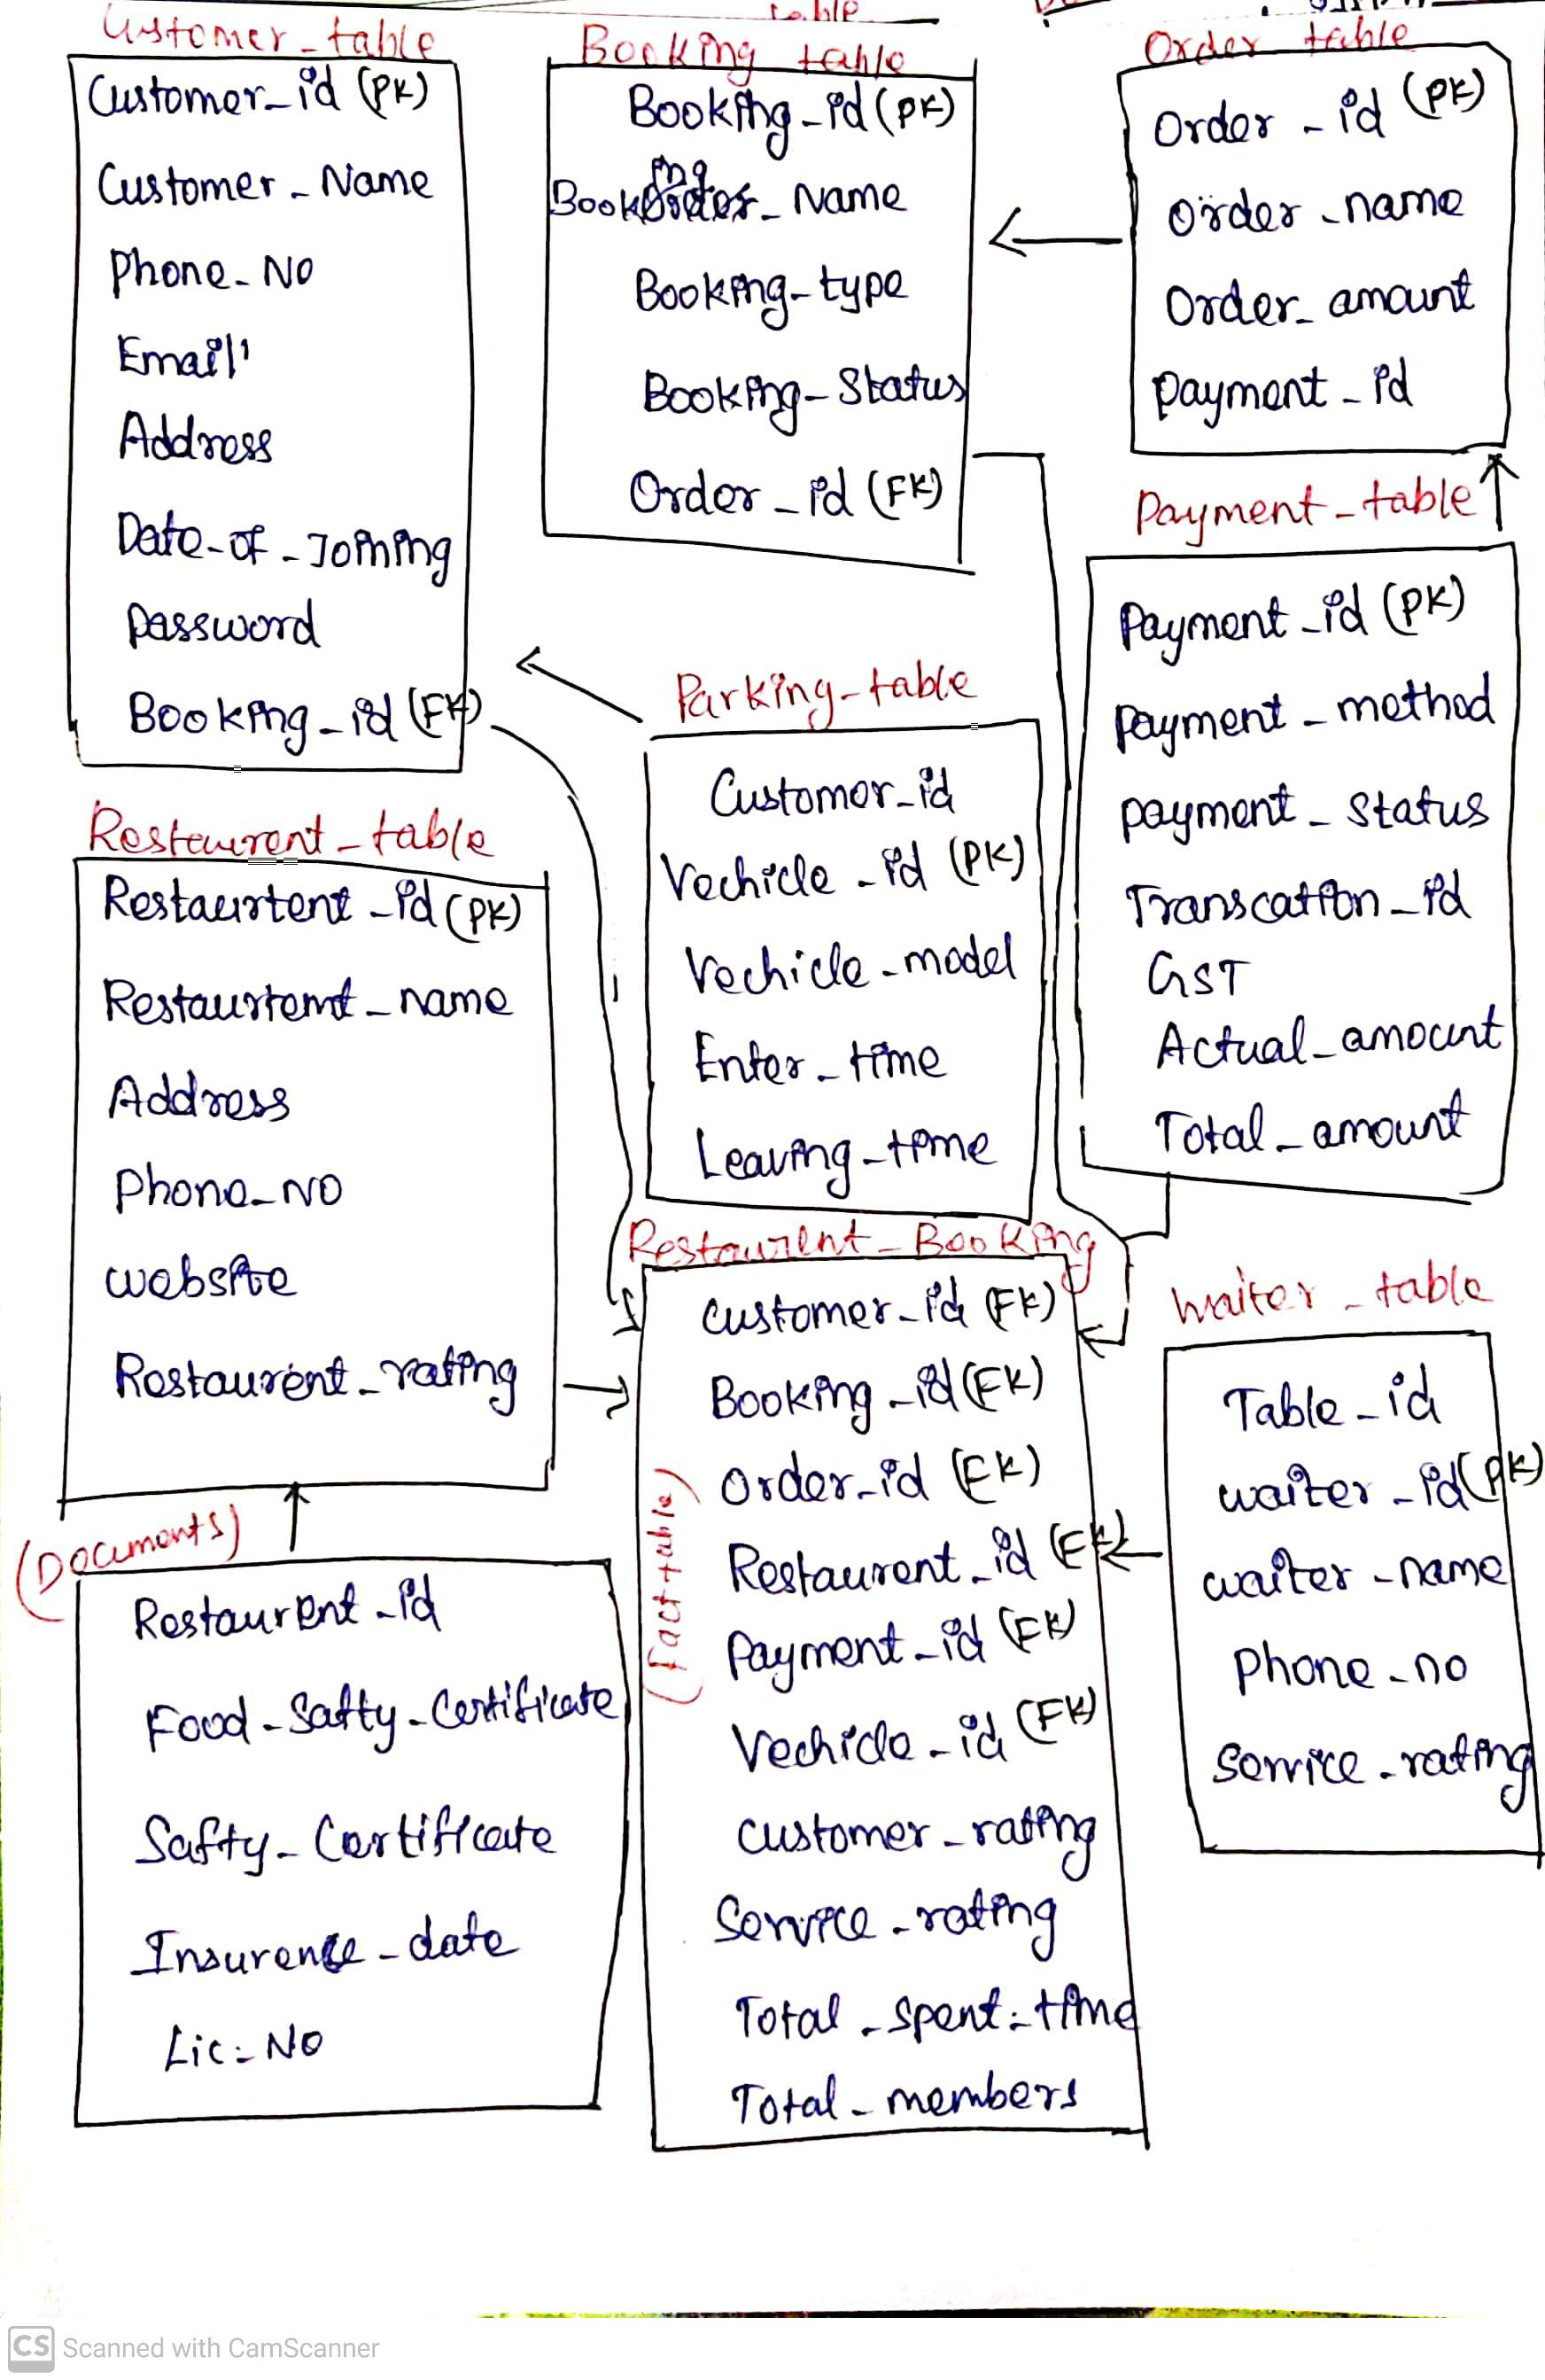 table
Customer_table
Customer_id (PK)
Customer_Name
Phone_No
Email
Address
Date_of_Joining
Password
Booking_id (FK)
Booking table
Booking_id (PK)
Booking_Name
Booking_type
Booking_Status
Order_id (FK)
Order table
Order_id (PK)
Order_name
Order_amount
Payment_id
Payment_table
Payment_id (PK)
Payment_method
payment_Status
Transcation_id
GST
Actual_amount
Total_amount
Parking_table
Customer_id
Vechicle_id (PK)
Vechicle_model
Enter_time
Leaving_time
Restaurent_table
Restaurtent_id (PK)
Restaurtent_name
Address
Phone_NO
website
Restaurent_rating
(Documents)
Restaurent_id
Food_Safty_Certificate
Safty_Certificate
Insurence_date
Lic_No
Restaurent_Booking
(fact table)
Customer_id (FK)
Booking_id (FK)
Order_id (FK)
Restaurent_id (FK)
Payment_id (FK)
Vechicle_id (FK)
Customer_rating
Service_rating
Total_spent_time
Total_members
Waiter_table
Table_id
waiter_id (PK)
waiter_name
Phone_no
Service_rating
CS Scanned with CamScanner